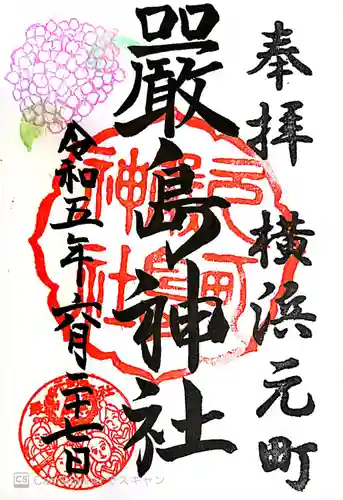 奉拝 横浜元町
嚴島神社
令和五年六月二十七日
元町嚴島神社
CS CamScannerでスキャン